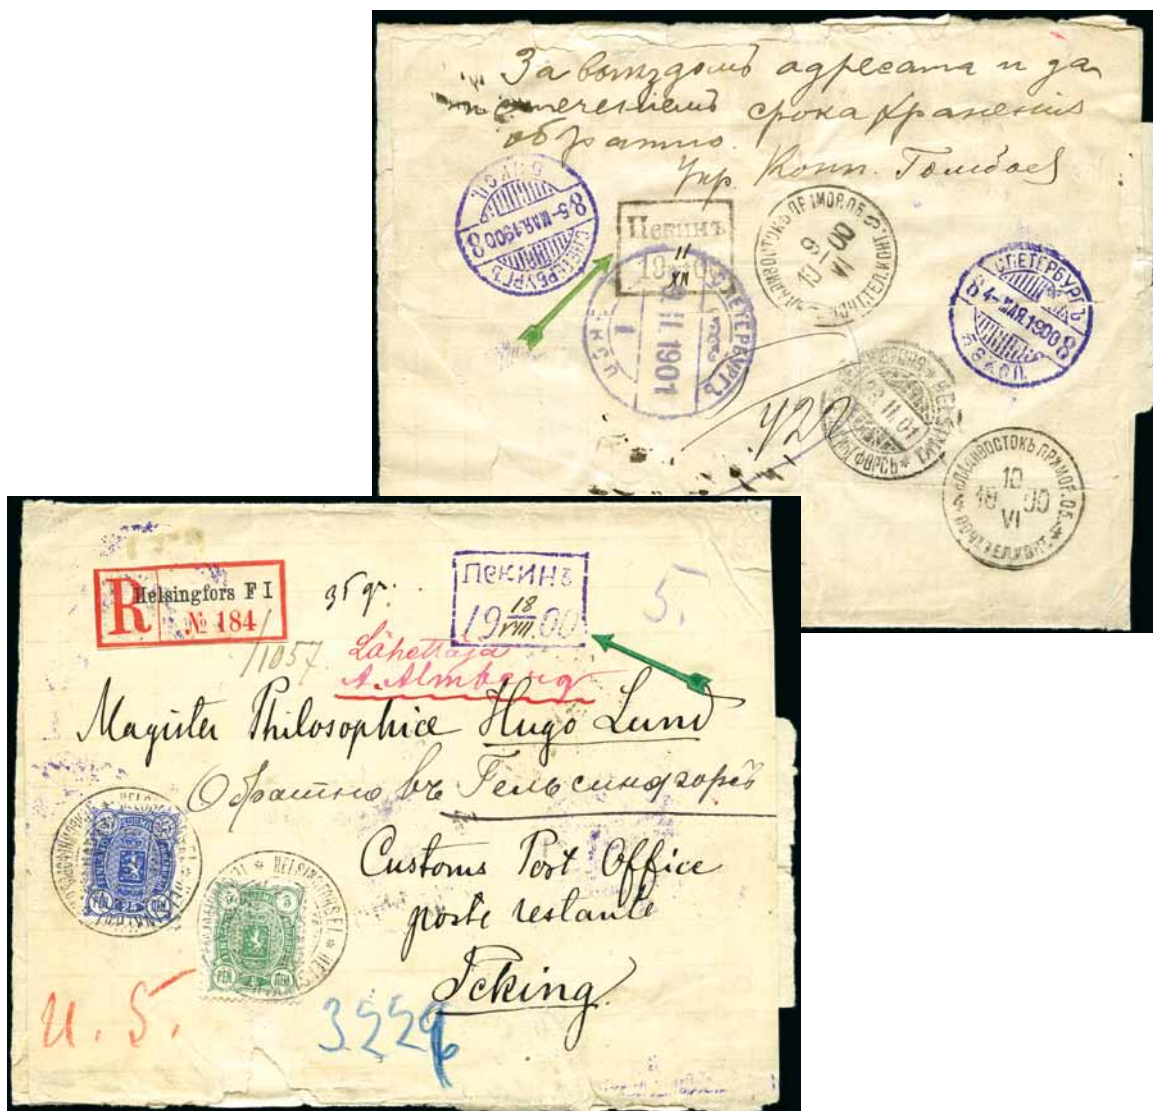 За выѣздомъ адресата и за
истеченіемъ срока храненія
обратно.
Упр. Конт. Гомбоев
С.ПЕТЕРБУРГЪ
8 5-МАЯ.1900 8
Пекинъ
19 11/XII 0
ВЛАДИВОСТОКЪ ПРИМОР.ОБ.
9
10 00
VI
С.ПЕТЕРБУРГЪ
8 4-МАЯ.1900 8
5 ЭКСП.
С.ПЕТЕРБУРГЪ
II.1901
1
II.01
420
ВЛАДИВОСТОКЪ ПРИМОР.ОБ.
10
18 00
VI
ПОЧТ.ТЕЛ.КОНТ.
R Helsingfors F I
№ 184
35 gr.
Пекинъ
19 18/VIII. 00
5.
1057
Lähettäjä
A. Almberg
Magister Philosophice Hugo Lund
Обратно въ Гельсингфорсъ
Customs Post Office
poste restante
Peking.
HELSINGFORS F.I.
PEN ПЕН
5 5
PEN ПЕН
И. 5.
3226